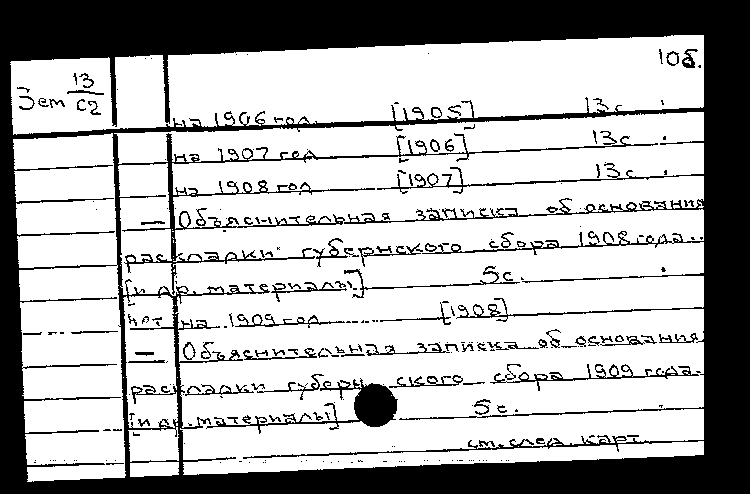 10б.
Зем 13/С2
на 1906 год. [1905] 13с.
на 1907 год [1906] 13с.
на 1908 год [1907] 13с.
— Объяснительная записка об основания
раскладки губернского сбора 1908 года..
[и др. материалы] 5с.
нет на 1909 год [1908]
— Объяснительная записка об основания
раскладки губернского сбора 1909 года.
[и др. материалы] 5с.
см. след. карт.